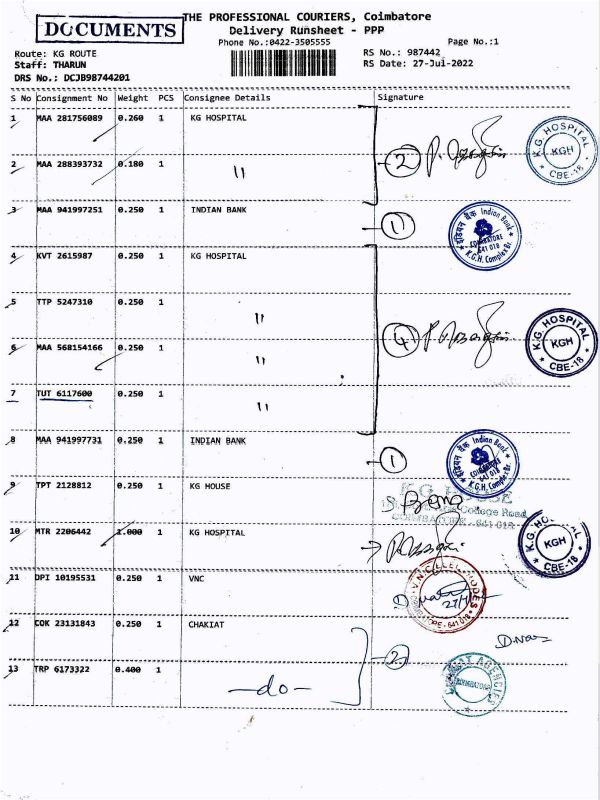 DOCUMENTS
THE PROFESSIONAL COURIERS, Coimbatore
Delivery Runsheet - PPP
Phone No.:0422-3505555
Page No.:1
Route: KG ROUTE
RS No.: 987442
Staff: THARUN
RS Date: 27-Jul-2022
DRS No.: DCJB98744201
S No Consignment No Weight PCS Consignee Details Signature
1 MAA 281756089 0.260 1 KG HOSPITAL
K.G. HOSPITAL
KGH
* CBE-18 *
2 MAA 288393732 0.180 1 〃
2
3 MAA 941997251 0.250 1 INDIAN BANK
1
इंडियन बैंक Indian Bank
COIMBATORE
641 018
K.G.H. Complex Br.
4 KVT 2615987 0.250 1 KG HOSPITAL
5 TTP 5247310 0.250 1 〃
6 MAA 568154166 0.250 1 〃
4
K.G. HOSPITAL
KGH
* CBE-18 *
7 TUT 6117600 0.250 1 〃
8 MAA 941997731 0.250 1 INDIAN BANK
1
इंडियन बैंक Indian Bank
COIMBATORE
641 018
K.G.H. Complex Br.
9 TPT 2128812 0.250 1 KG HOUSE
K.G. HOUSE
College Road
COIMBATORE - 641 018
10 MTR 2206442 1.000 1 KG HOSPITAL
K.G. HO
KGH
* CBE-18 *
11 DPI 10195531 0.250 1 VNC
COIMBATORE - 641 018
12 COK 23131843 0.250 1 CHAKIAT
2
13 TRP 6173322 0.400 1 -do-
AGENCIES
COIMBATORE